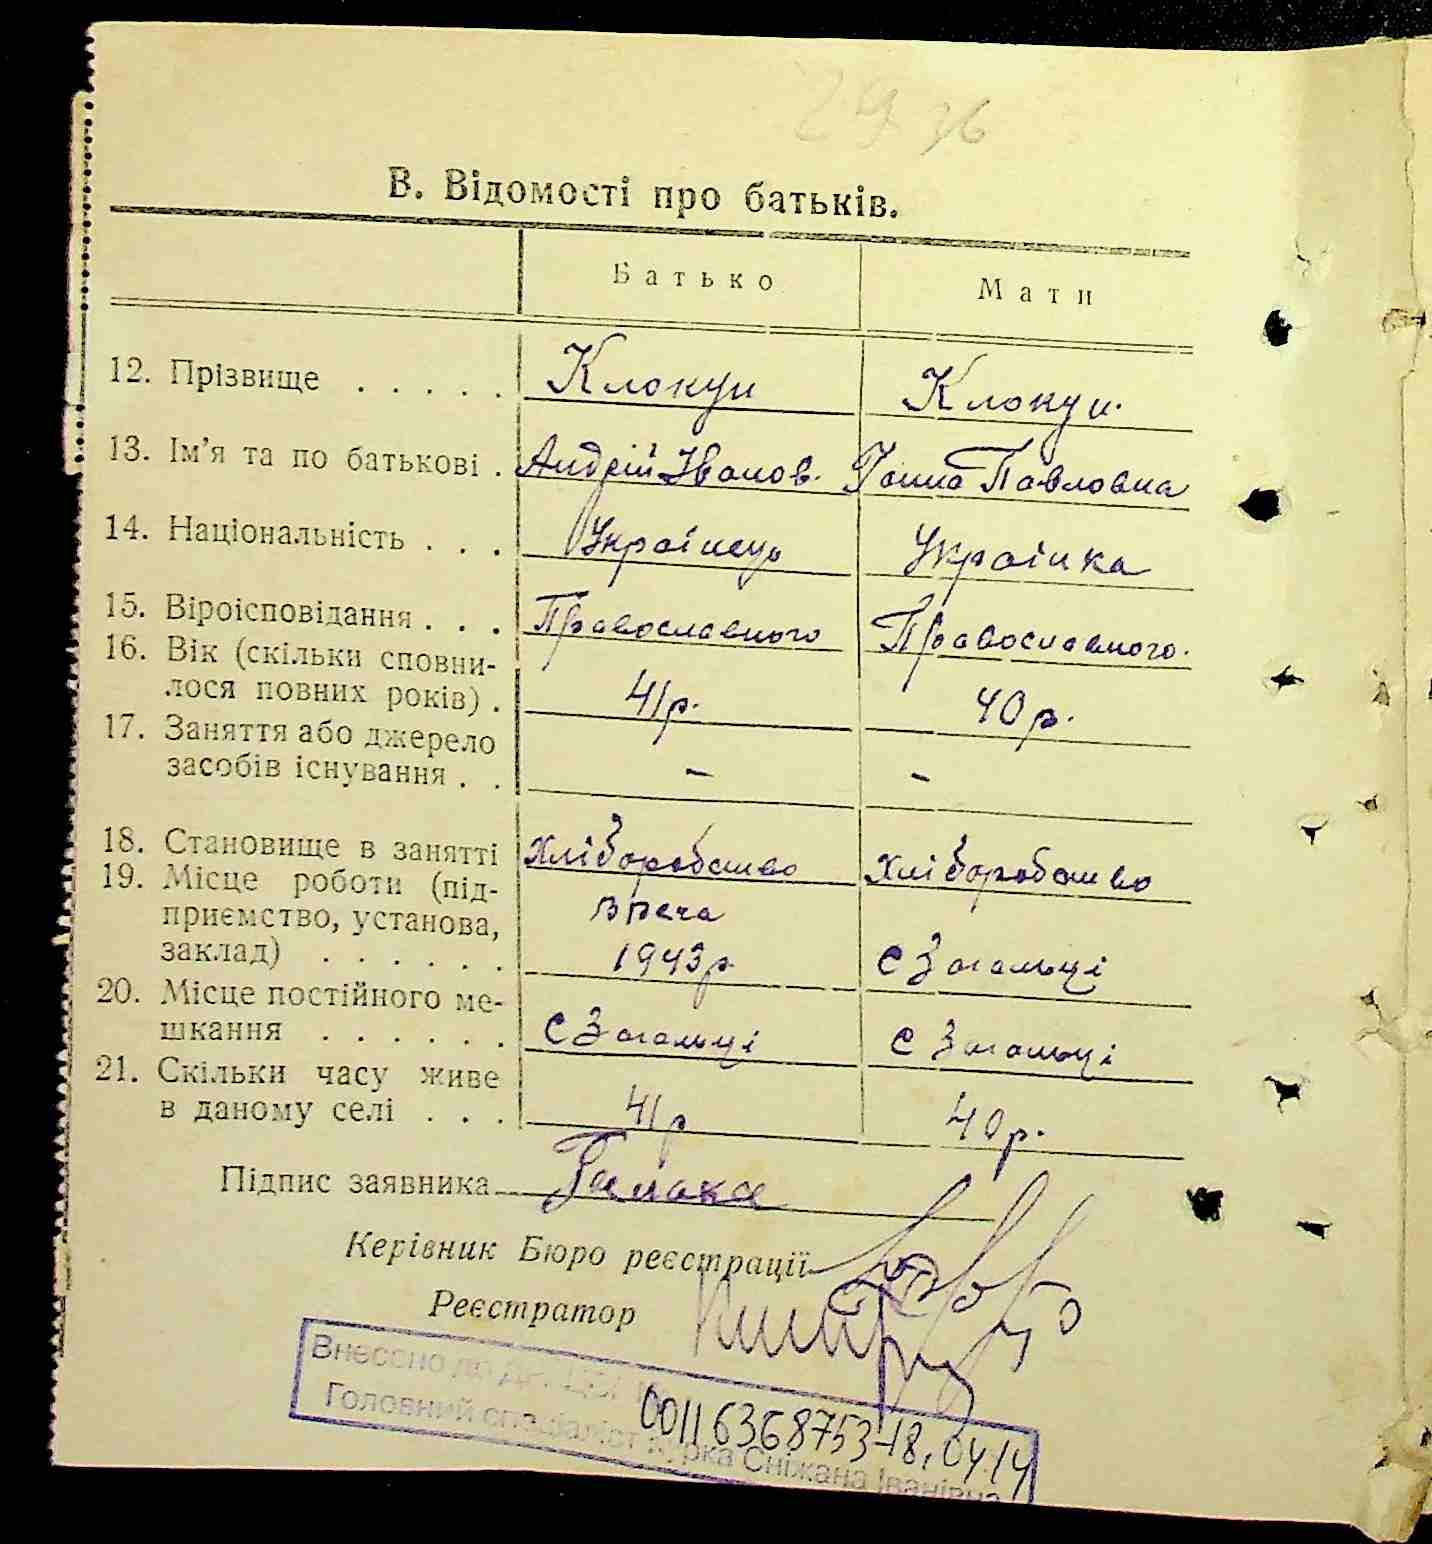 29 36
В. Відомості про батьків.
Батько Мати
12. Прізвище . . . . . Клокун Клокун.
13. Ім'я та по батькові . Андрій Іванов. Ганна Павловна
14. Національність . . . Українець Українка
15. Віроісповідання . . . Православного Православного.
16. Вік (скільки сповни-
лося повних років) . 41р. 40р.
17. Заняття або джерело
засобів існування . . – –
18. Становище в занятті Хліборобство Хліборобство
19. Місце роботи (під-
приємство, установа,
заклад) . . . . . . 1943р. с Загальці
20. Місце постійного ме-
шкання . . . . . . с Загальці с Загальці
21. Скільки часу живе
в даному селі . . . 41р 40р.
Підпис заявника
Керівник Бюро реєстрації
Реєстратор
Внесено до
00116368753-18.04.14
Головний спеціаліст Сніжана Іванівна